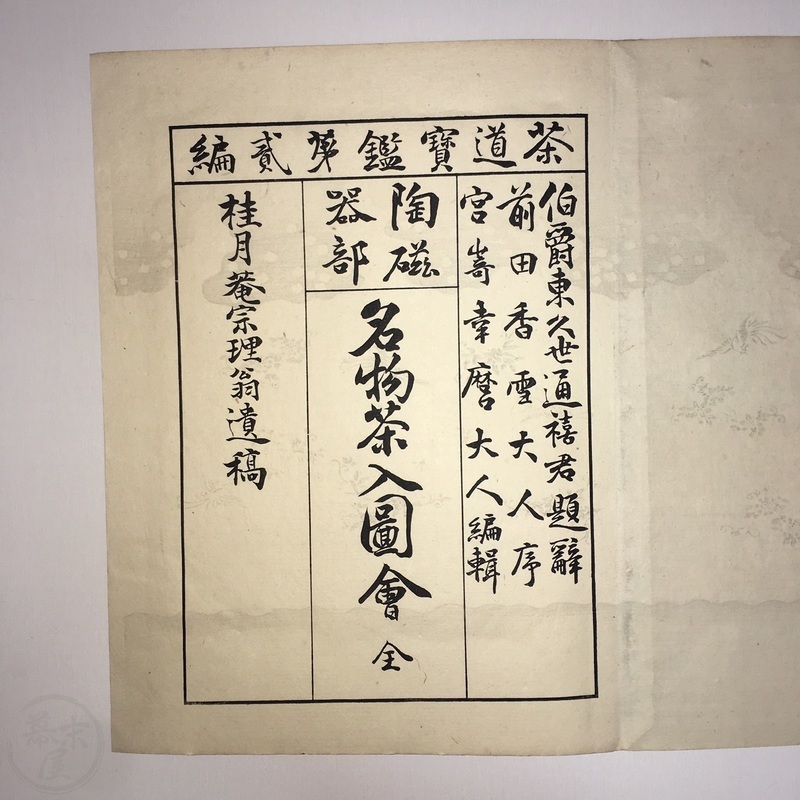 茶道寶鑑第貳編
伯爵東久世通禧君題辭
前田香雪大人序
宮嵜幸麿大人編輯
陶磁
器部
名物茶入圖會 全
桂月菴宗理翁遺稿
幕末屋